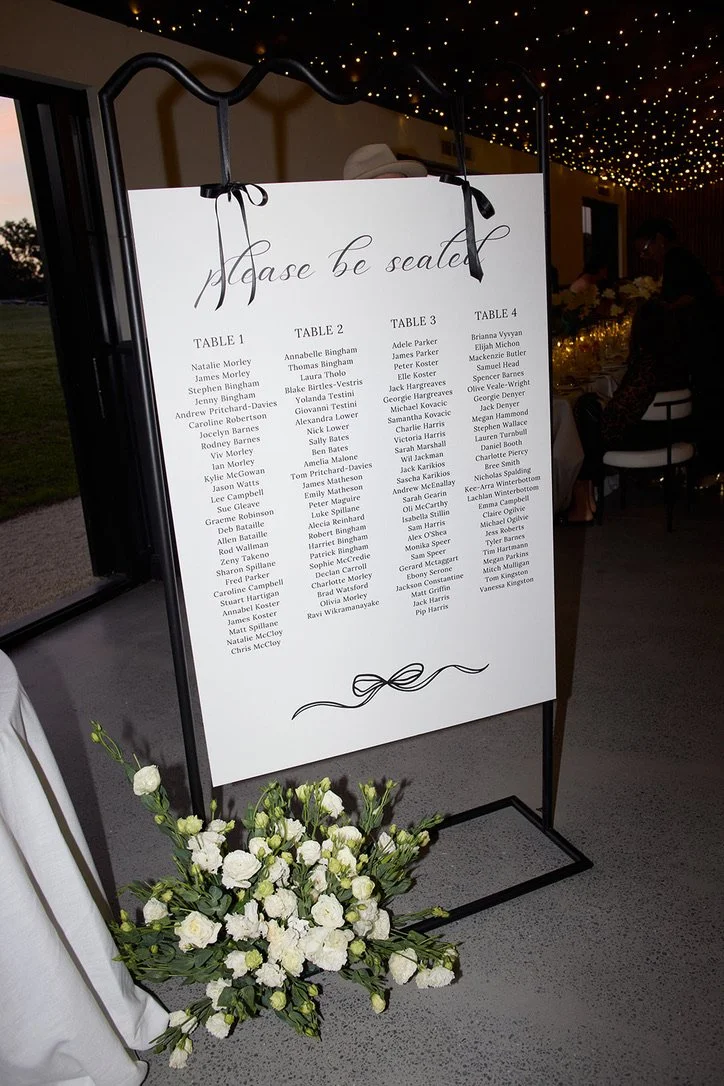 please be seated
TABLE 1
Natalie Morley
James Morley
Stephen Bingham
Jenny Bingham
Andrew Pritchard-Davies
Caroline Robertson
Jocelyn Barnes
Rodney Barnes
Viv Morley
Ian Morley
Kylie McGowan
Jason Watts
Lee Campbell
Sue Gleave
Graeme Robinson
Deb Bataille
Allen Bataille
Rod Wallman
Zeny Takeno
Sharon Spillane
Fred Parker
Caroline Campbell
Stuart Hartigan
Annabel Koster
James Koster
Matt Spillane
Natalie McCloy
Chris McCloy
TABLE 2
Annabelle Bingham
Thomas Bingham
Laura Tholo
Blake Birtles-Vestris
Yolanda Testini
Giovanni Testini
Alexandra Lower
Nick Lower
Sally Bates
Ben Bates
Amelia Malone
Tom Pritchard-Davies
James Matheson
Emily Matheson
Peter Maguire
Luke Spillane
Alecia Reinhard
Robert Bingham
Harriet Bingham
Patrick Bingham
Sophie McCredie
Declan Carroll
Charlotte Morley
Brad Watsford
Olivia Morley
Ravi Wikramanayake
TABLE 3
Adele Parker
James Parker
Peter Koster
Elle Koster
Jack Hargreaves
Georgie Hargreaves
Michael Kovacic
Samantha Kovacic
Charlie Harris
Victoria Harris
Sarah Marshall
Wil Jackman
Jack Karikios
Sascha Karikios
Andrew McEnallay
Sarah Gearin
Oli McCarthy
Isabella Stillin
Sam Harris
Alex O'Shea
Monika Speer
Sam Speer
Gerard Mctaggart
Ebony Serone
Jackson Constantine
Matt Griffin
Jack Harris
Pip Harris
TABLE 4
Brianna Vyvyan
Elijah Michon
Mackenzie Butler
Samuel Head
Spencer Barnes
Olive Veale-Wright
Georgie Denyer
Jack Denyer
Megan Hammond
Stephen Wallace
Lauren Turnbull
Daniel Booth
Charlotte Piercy
Bree Smith
Nicholas Spalding
Kee-Arra Winterbottom
Lachlan Winterbottom
Emma Campbell
Claire Ogilvie
Michael Ogilvie
Jess Roberts
Tyler Barnes
Tim Hartmann
Megan Parkins
Mitch Mulligan
Tom Kingston
Vanessa Kingston